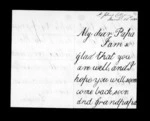 My dear Papa
I am so
glad that you
are well, and I
hope you will soon
come back, soon
and Grandpapa